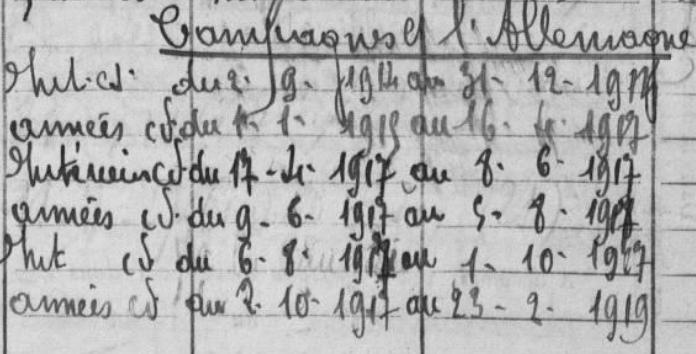 Campagnes c/ l'Allemagne
Int. cs. du 2. 9. 1914 au 31. 12. 1914
armées cs du 1. 1. 1915 au 16. 4. 1917
Intérieur cs du 17. 4. 1917 au 8. 6. 1917
armées cs. du 9. 6. 1917 au 5. 8. 1917
Int cs du 6. 8. 1917 au 1. 10. 1917
armées cs du 2. 10. 1917 au 23. 2. 1919